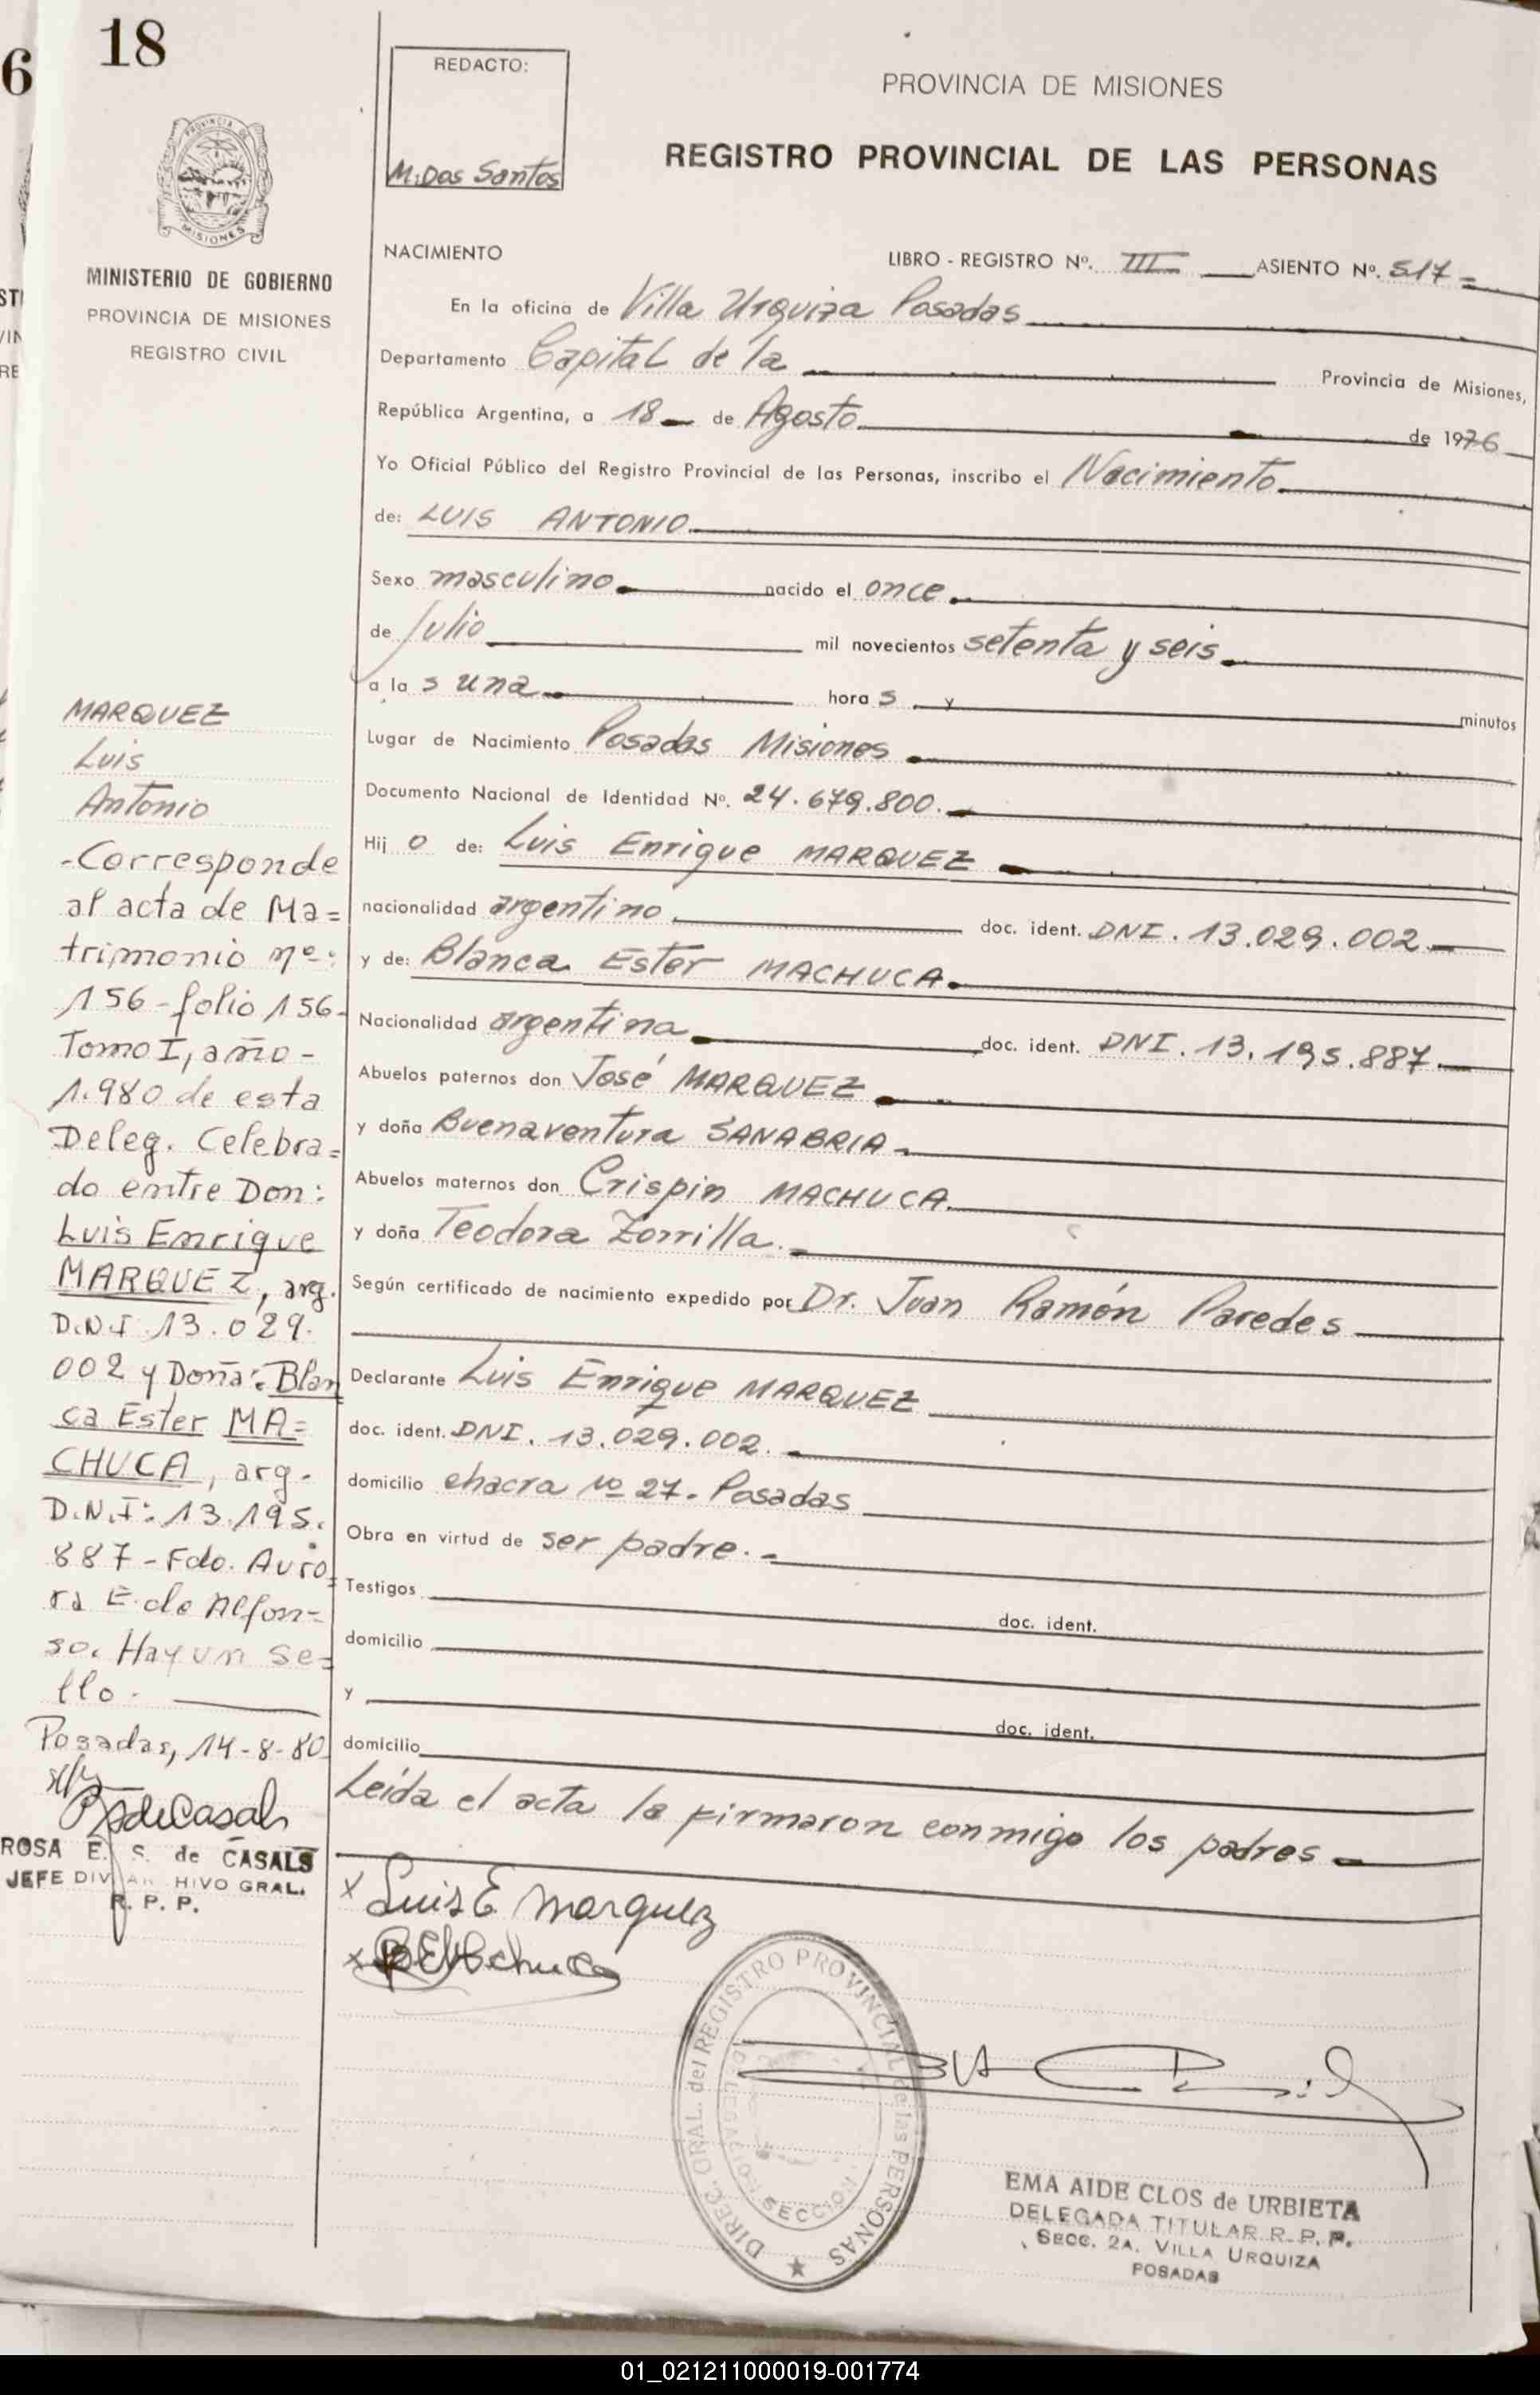 6
18
REDACTO:
M. Dos Santos
PROVINCIA DE MISIONES
REGISTRO PROVINCIAL DE LAS PERSONAS
PROVINCIA DE
MISIONES
MINISTERIO DE GOBIERNO
PROVINCIA DE MISIONES
REGISTRO CIVIL
NACIMIENTO LIBRO - REGISTRO Nº. III ASIENTO Nº. 517=
En la oficina de Villa Urquiza Posadas
Departamento Capital de la Provincia de Misiones,
República Argentina, a 18 de Agosto de 1976
Yo Oficial Público del Registro Provincial de las Personas, inscribo el Nacimiento
de: LUIS ANTONIO
Sexo masculino nacido el once
de Julio mil novecientos setenta y seis
a la s una hora s y minutos
Lugar de Nacimiento Posadas Misiones
Documento Nacional de Identidad Nº. 24.679.800.
Hij o de: Luis Enrique MARQUEZ
nacionalidad argentino doc. ident. DNI. 13.029.002
y de: Blanca Ester MACHUCA
Nacionalidad argentina doc. ident. DNI. 13.195.887
Abuelos paternos don José MARQUEZ
y doña Buenaventura SANABRIA
Abuelos maternos don Crispin MACHUCA
y doña Teodora Zorrilla.
Según certificado de nacimiento expedido por Dr. Juan Ramón Paredes
Declarante Luis Enrique MARQUEZ
doc. ident. DNI. 13.029.002.
domicilio chacra Nº 27. Posadas
Obra en virtud de ser padre.
Testigos doc. ident.
domicilio
y doc. ident.
domicilio
Leída el acta la firmaron conmigo los padres
x Luis E Marquez
x B E Machuca
MARQUEZ
Luis
Antonio
-Corresponde
al acta de Ma=
trimonio nº:
156-folio 156-
Tomo I, año-
1.980 de esta
Deleg. Celebra=
do entre Don:
Luis Enrique
MARQUEZ, arg.
D.N.I 13.029.
002 y Doña: Blan
ca Ester MA=
CHUCA, arg.
D.N.I: 13.195.
887-Fdo. Auro=
ra E. de Alfon=
so. Hay un se=
llo.
Posadas, 14-8-80
ROSA E. S. de CASALS
JEFE DIV. AR HIVO GRAL.
R. P. P.
DIREC. GRAL. del REGISTRO PROVINCIAL de las PERSONAS
DELEGACION
SECCION
EMA AIDE CLOS de URBIETA
DELEGADA TITULAR R. P. P.
SECC. 2A. VILLA URQUIZA
POSADAS
01_021211000019-001774